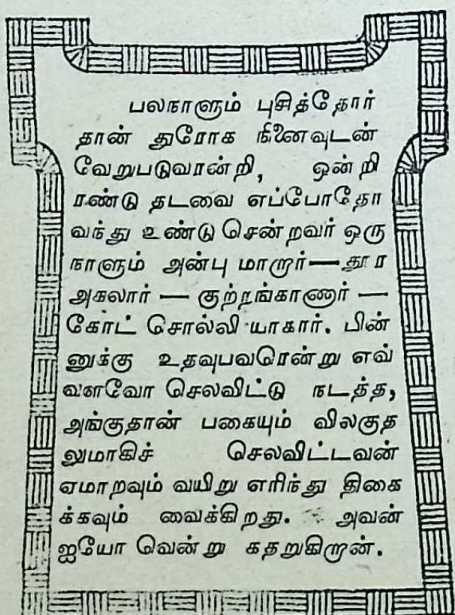 பலநாளும் புசித்தோர்
தான் துரோக நினைவுடன்
வேறுபடுவரன்றி, ஒன்றி
ரண்டு தடவை எப்போதோ
வந்து உண்டு சென்றவர் ஒரு
நாளும் அன்பு மாறார்—தூர
அகலார் — குற்றங்காணார் —
கோட் சொல்லி யாகார். பின்
னுக்கு உதவுபவரென்று எவ்
வளவோ செலவிட்டு நடத்த,
அங்குதான் பகையும் விலகுத
லுமாகிச் செலவிட்டவன்
ஏமாறவும் வயிறு எரிந்து திகை
க்கவும் வைக்கிறது. அவன்
ஐயோ வென்று கதறுகிறான்.